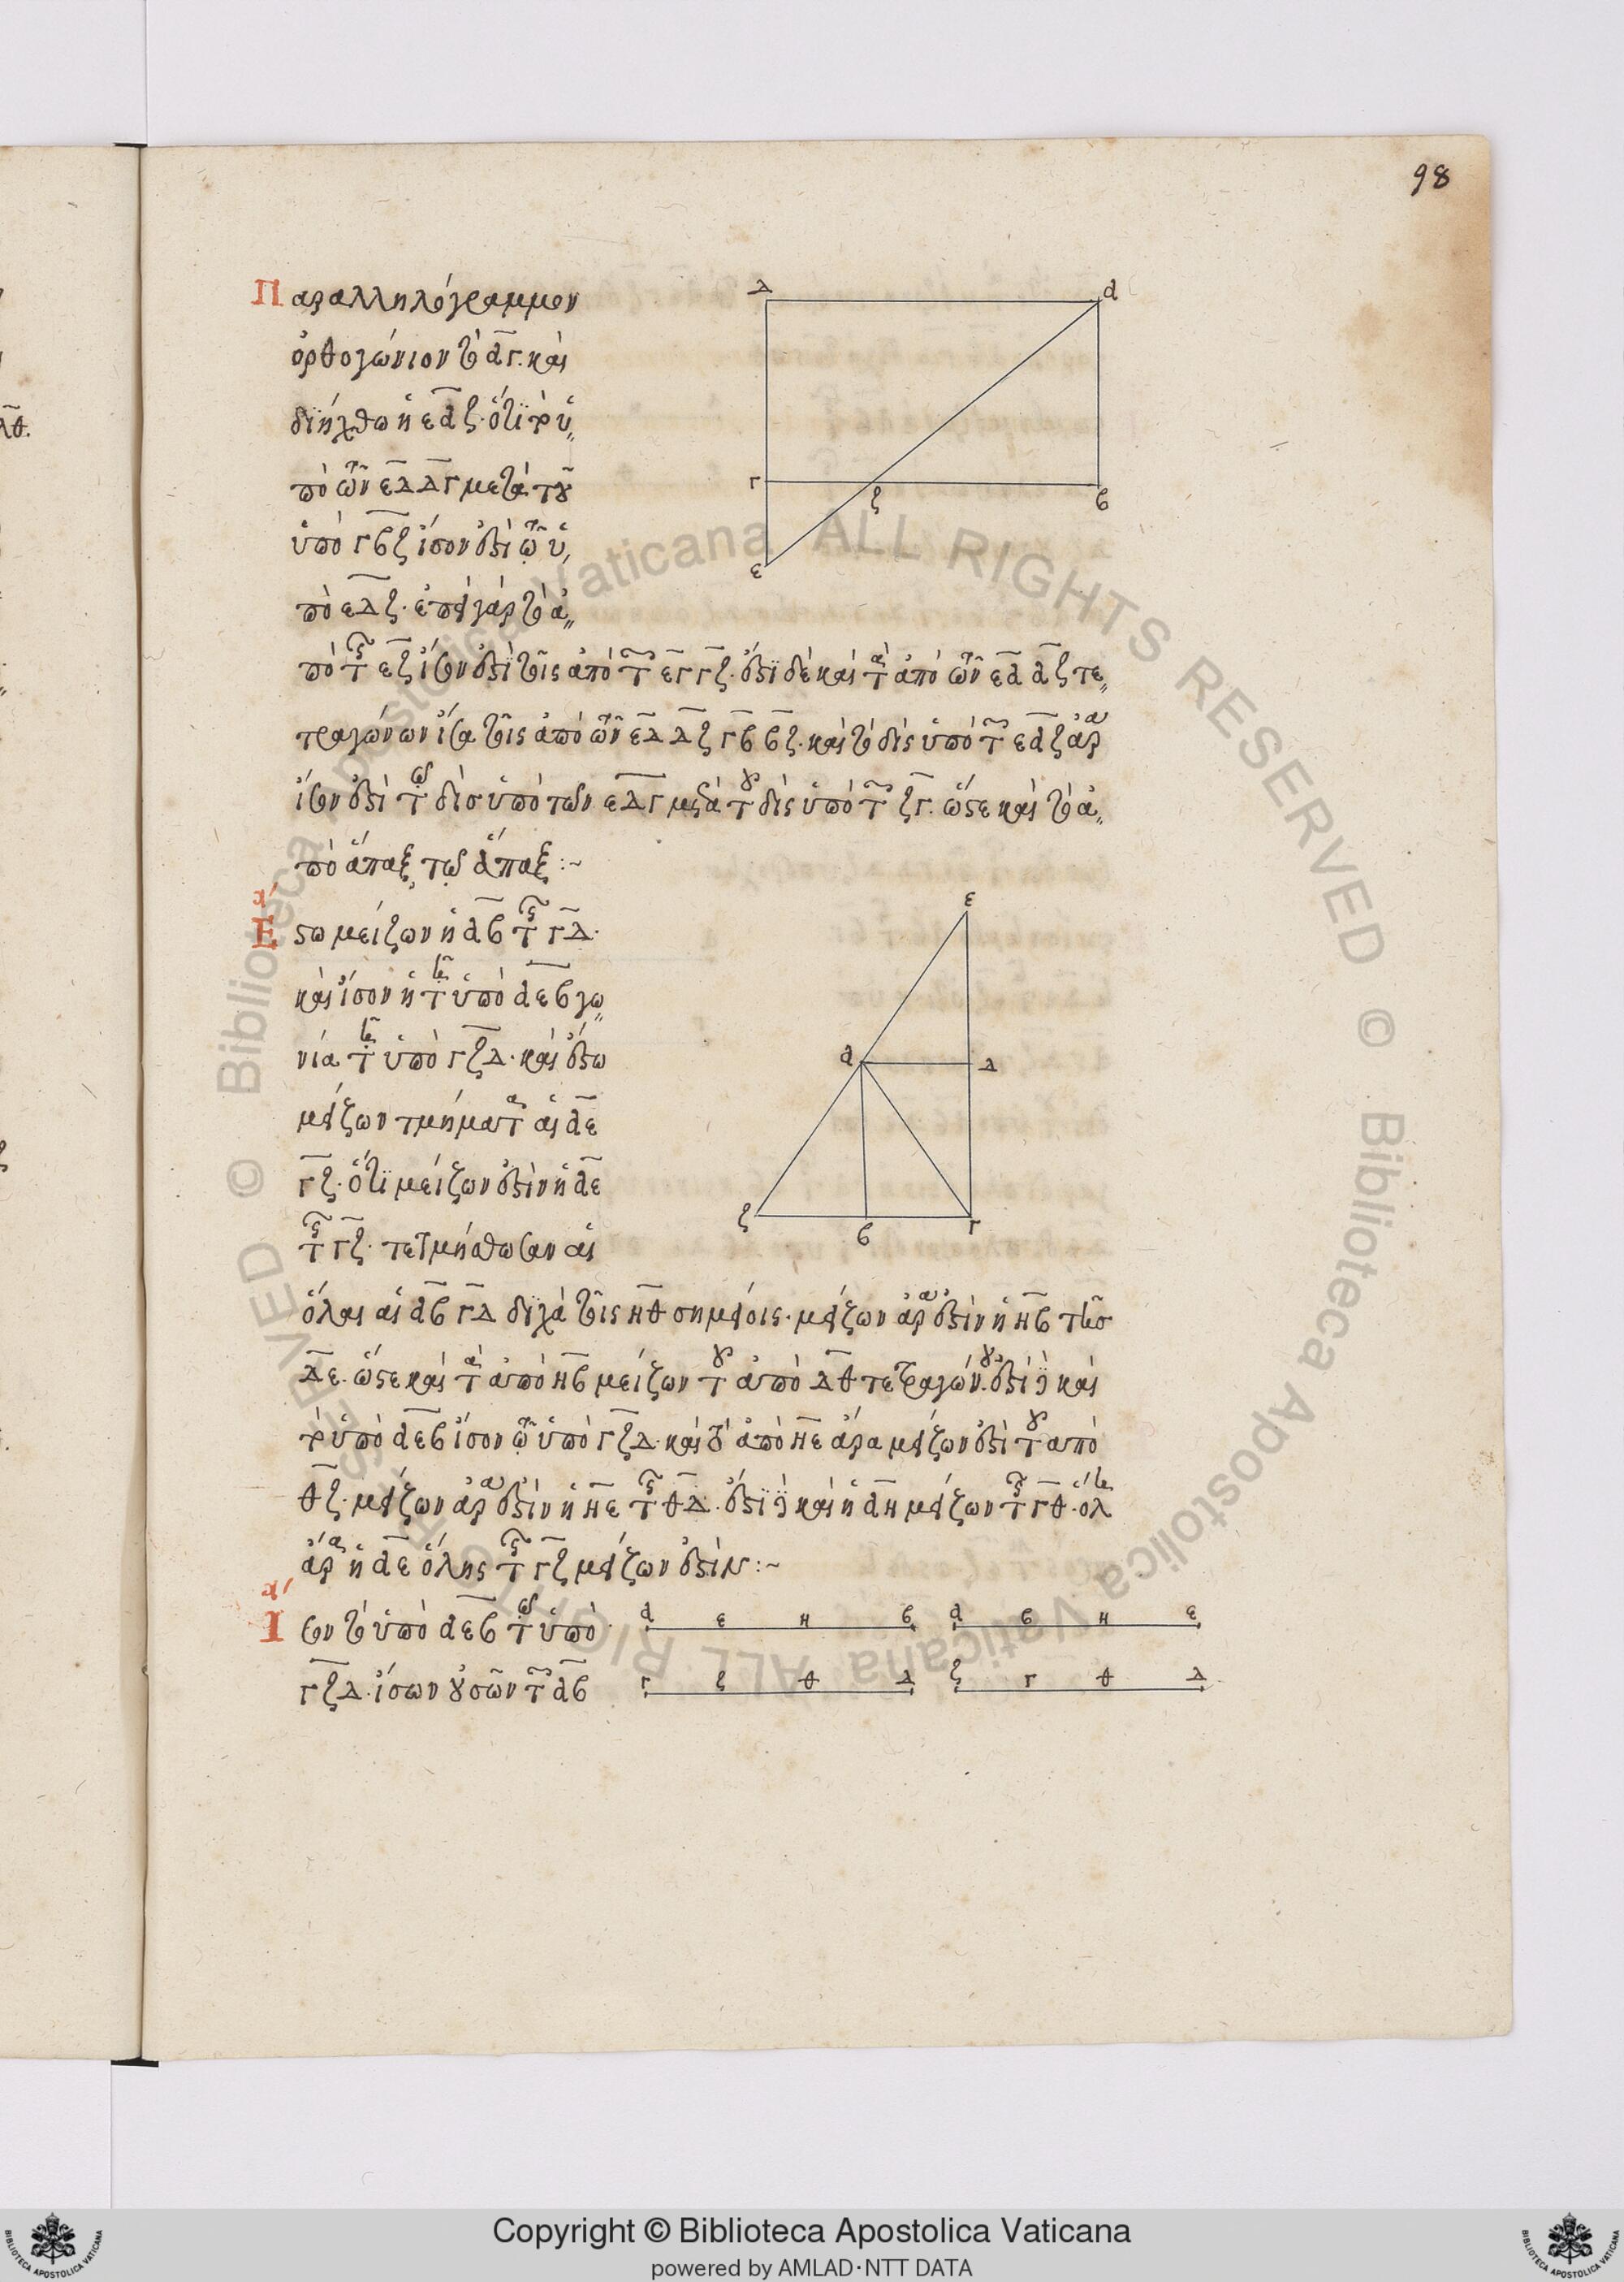 98
Παραλληλόγραμμον
ὀρθογώνιον τὸ αγ. καὶ
διήχθω ἡ εαζ. ὅτι τὸ ὑ
πὸ τῶν εδ δγ μετὰ τοῦ
ὑπὸ γβζ ἴσον ἐστὶ τῷ ὑ
πὸ εαζ. ἐπεὶ γὰρ τὸ ἀ
πὸ τῆς εζ ἴσον ἐστὶ τοῖς ἀπὸ τῶν εγ γζ. ἔστι δὲ καὶ τὰ ἀπὸ τῶν εα αζ τε
τραγώνων ἴσα τοῖς ἀπὸ τῶν εδ δζ γβ βζ. καὶ τὸ δὶς ὑπὸ τῶν εαζ ἄρα
ἴσον ἐστὶ τῷ δὶς ὑπὸ τῶν εδγ μετὰ τοῦ δὶς ὑπὸ τῶν ζγ. ὥστε καὶ τὸ ἀ
πὸ ἅπαξ τῷ ἅπαξ :~
α´
Εστω μείζων ἡ αβ τῆς γδ.
καὶ ἴσον ἡ τὴν ὑπὸ αεβ γω
νία τὴν ὑπὸ γζδ. καὶ ἔστω
μείζων τμήματα αἱ αε
γζ. ὅτι μείζων ἐστὶν ἡ αε
τῆς γζ. τετμήσθωσαν αἱ
ὅλαι αἱ αβ γδ δίχα τοῖς ηθ σημείοις. μείζων ἄρα ἐστὶν ἡ ηβ τῆς
δε. ὥστε καὶ τὰ ἀπὸ ηβ μείζων τοῦ ἀπὸ δθ τετραγώνου. ἐστὶ καὶ
τὸ ὑπὸ αεβ ἴσον τῷ ὑπὸ γζδ. καὶ τὸ ἀπὸ ηε ἄρα μείζων ἐστὶ τοῦ ἀπὸ
θζ. μείζων ἄρα ἐστὶν ἡ ηε τῆς θδ. ἔστι καὶ ἡ αη μείζων τῆς γθ. ὅλη
ἄρα ἡ αε ὅλης τῆς γζ μείζων ἐστίν :~
α´
Ισον τὸ ὑπὸ αεβ τῷ ὑπὸ
γζδ. ἴσων οὐσῶν τῶν αβ
δ α
γ ζ β
ε
ε
α δ
ζ β γ
α ε η β α β η ε
γ ζ θ δ ζ γ θ δ
© Biblioteca Apostolica Vaticana ALL RIGHTS RESERVED © Biblioteca Apostolica Vaticana ALL RIGHTS RESERVED
Copyright © Biblioteca Apostolica Vaticana
powered by AMLAD·NTT DATA
BIBLIOTECA APOSTOLICA VATICANA
BIBLIOTECA APOSTOLICA VATICANA